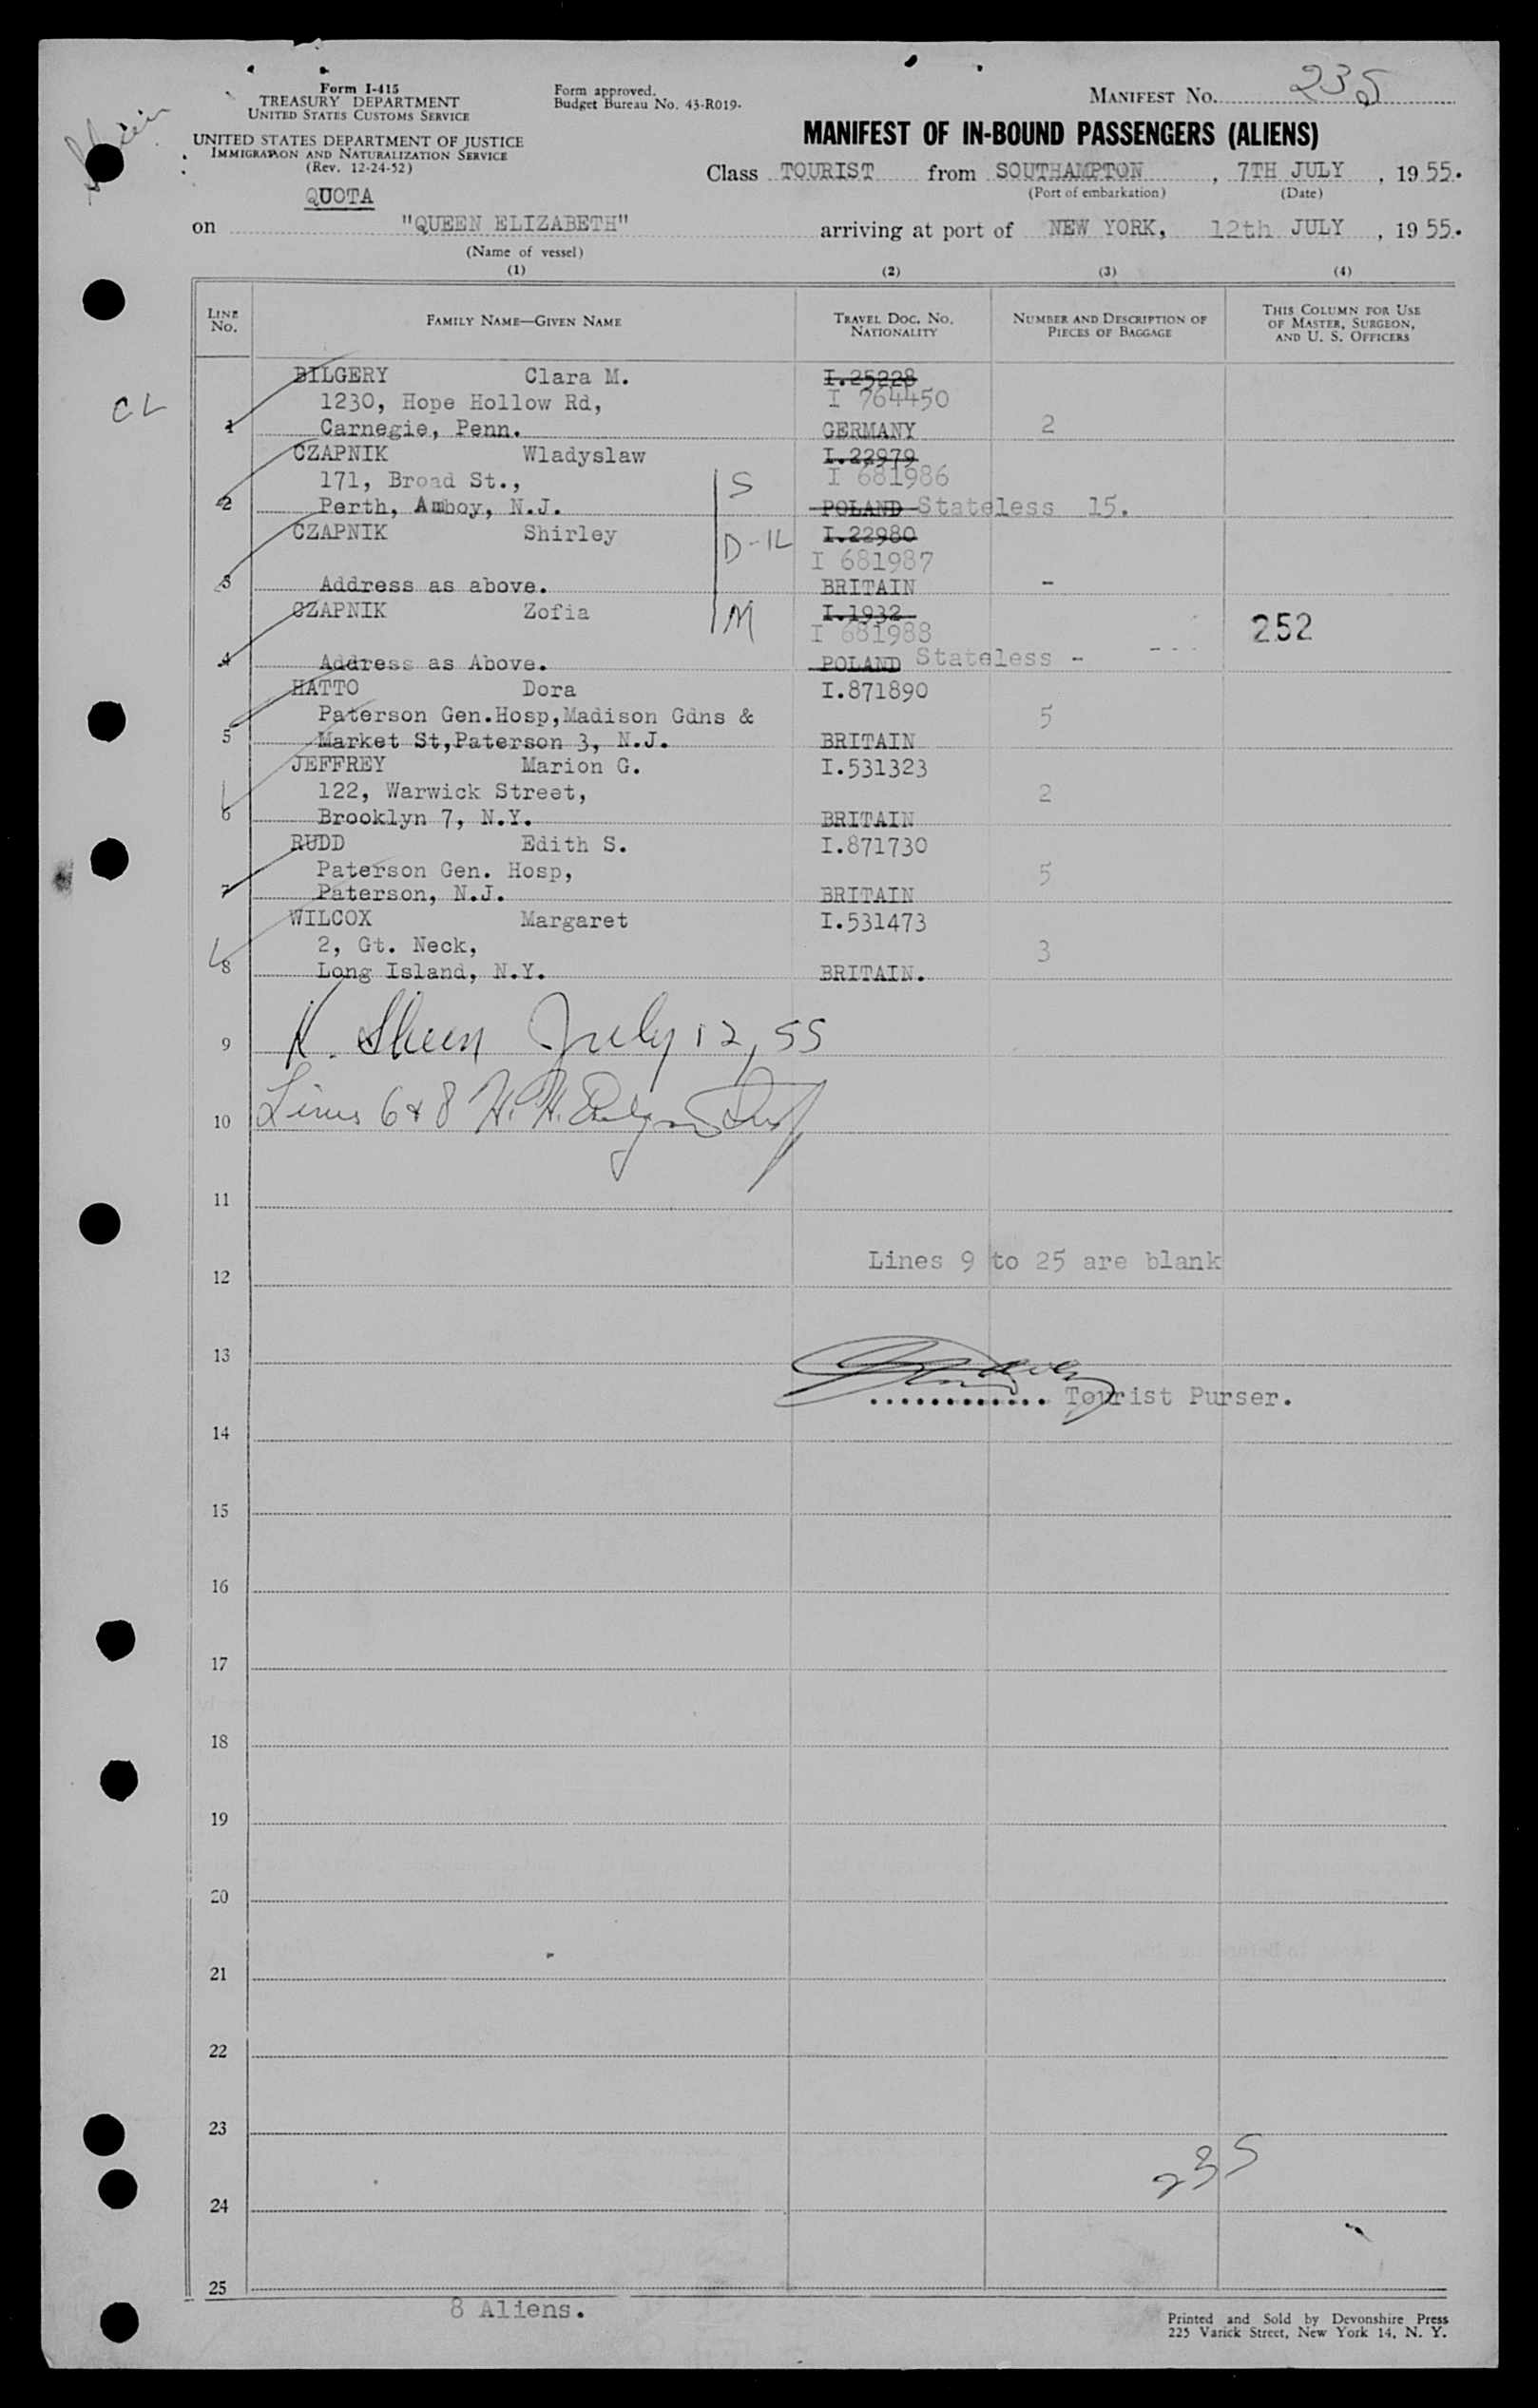 Form I-415
TREASURY DEPARTMENT
UNITED STATES CUSTOMS SERVICE
UNITED STATES DEPARTMENT OF JUSTICE
IMMIGRATION AND NATURALIZATION SERVICE
(Rev. 12-24-52)
Form approved.
Budget Bureau No. 43-R019.
MANIFEST NO. 235
MANIFEST OF IN-BOUND PASSENGERS (ALIENS)
Class TOURIST from SOUTHAMPTON, 7TH JULY, 1955.
(Port of embarkation) (Date)
QUOTA
on "QUEEN ELIZABETH" arriving at port of NEW YORK, 12th JULY, 1955.
(Name of vessel)
(1) (2) (3) (4)
LINE NO. FAMILY NAME—GIVEN NAME TRAVEL DOC. NO. NATIONALITY NUMBER AND DESCRIPTION OF PIECES OF BAGGAGE THIS COLUMN FOR USE OF MASTER, SURGEON, AND U. S. OFFICERS
BILGERY Clara M. I.25228
CL 1230, Hope Hollow Rd, I 764450
1 Carnegie, Penn. GERMANY 2
CZAPNIK Wladyslaw I.22979
171, Broad St., S I 681986
2 Perth, Amboy, N.J. POLAND Stateless 15.
CZAPNIK Shirley I.22980
D-1L I 681987
3 Address as above. BRITAIN -
CZAPNIK Zofia M I.1932
I 681988 252
4 Address as Above. POLAND Stateless - ---
HATTO Dora I.871890
Paterson Gen.Hosp,Madison Gdns & 5
5 Market St,Paterson 3, N.J. BRITAIN
JEFFREY Marion G. I.531323
122, Warwick Street, 2
6 Brooklyn 7, N.Y. BRITAIN
RUDD Edith S. I.871730
Paterson Gen. Hosp, 5
7 Paterson, N.J. BRITAIN
WILCOX Margaret I.531473
2, Gt. Neck, 3
8 Long Island, N.Y. BRITAIN.
9 July 12, 55
10 Lines 6 & 8 H. H.
11
Lines 9 to 25 are blank
12
13
............ Tourist Purser.
14
15
16
17
18
19
20
21
22
23
235
24
25
8 Aliens.
Printed and Sold by Devonshire Press
225 Varick Street, New York 14, N. Y.